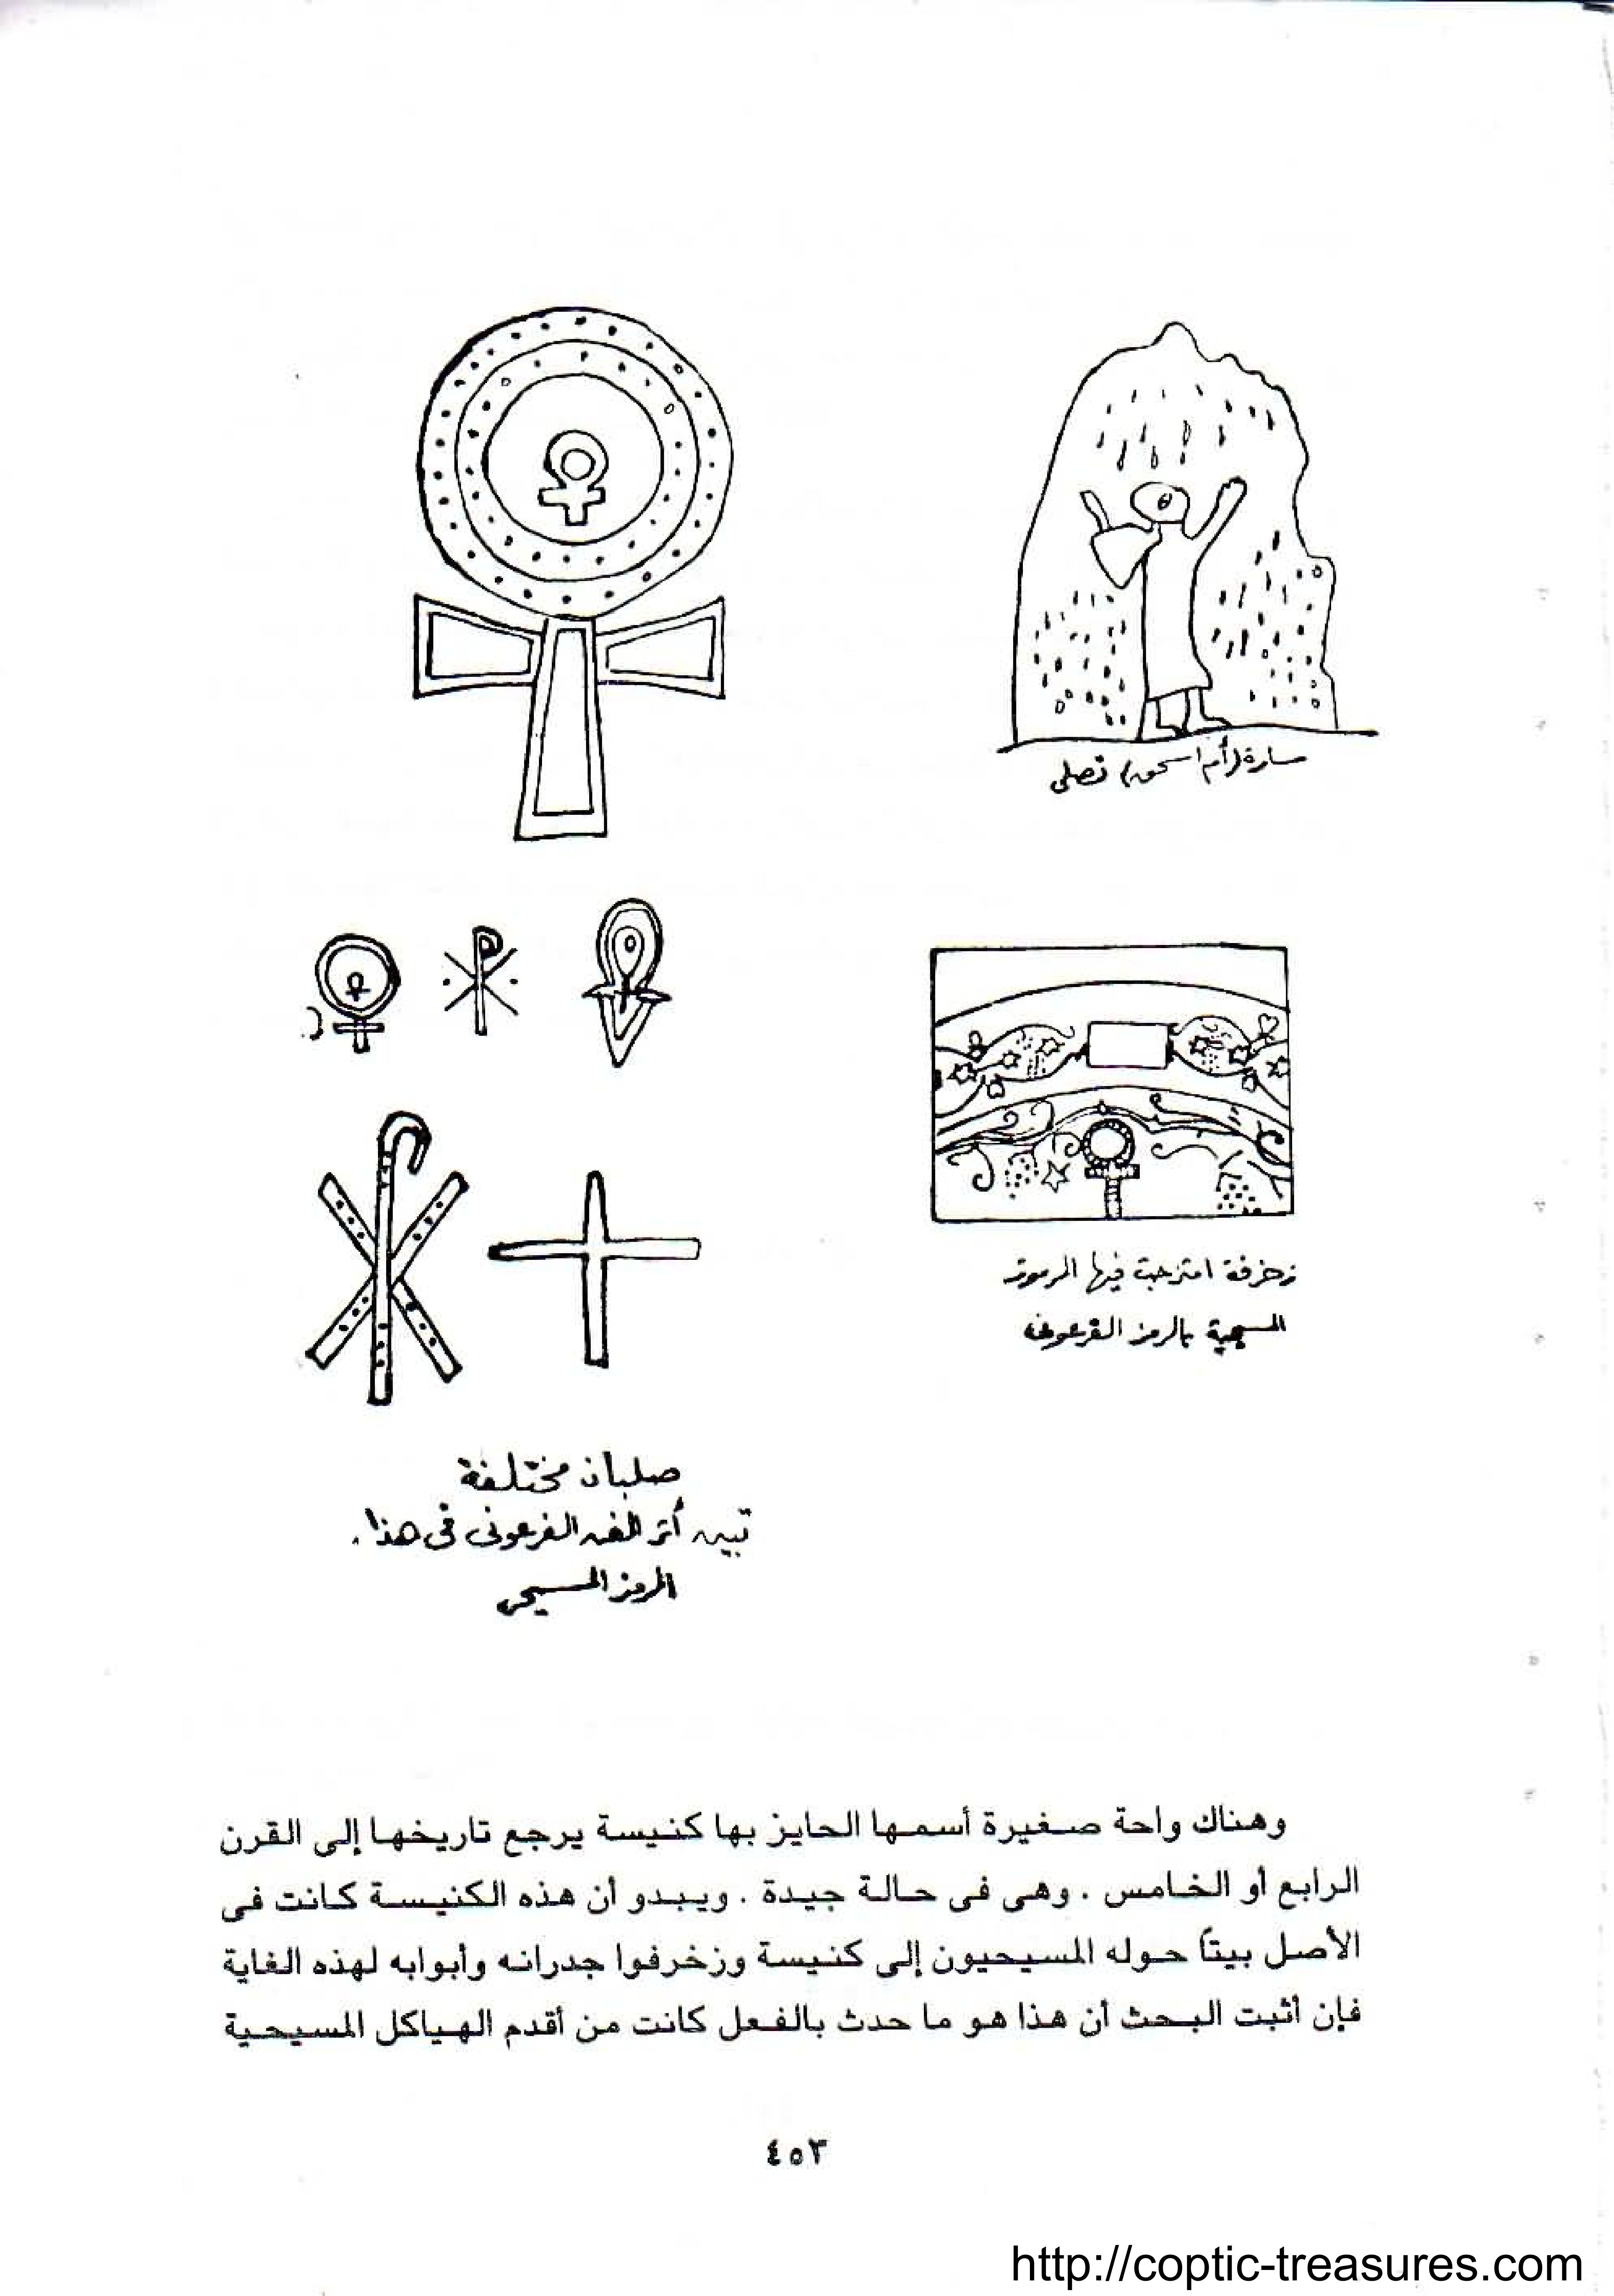 سارة (أم اسحق) تصلى
زخرفة امتزجت فيها الرسوم
المسيحية بالرمز الفرعونى
صلبان مختلفة
تبين أثر الفن الفرعونى فى هذا
الرمز المسيحى
وهناك واحة صغيرة أسمها الحايز بها كنيسة يرجع تاريخها إلى القرن
الرابع أو الخامس . وهى فى حالة جيدة . ويبدو أن هذه الكنيسة كانت فى
الأصل بيتاً حوله المسيحيون إلى كنيسة وزخرفوا جدرانه وأبوابه لهذه الغاية
فإن أثبت البحث أن هذا هو ما حدث بالفعل كانت من أقدم الهياكل المسيحية
٤٥٣
http://coptic-treasures.com